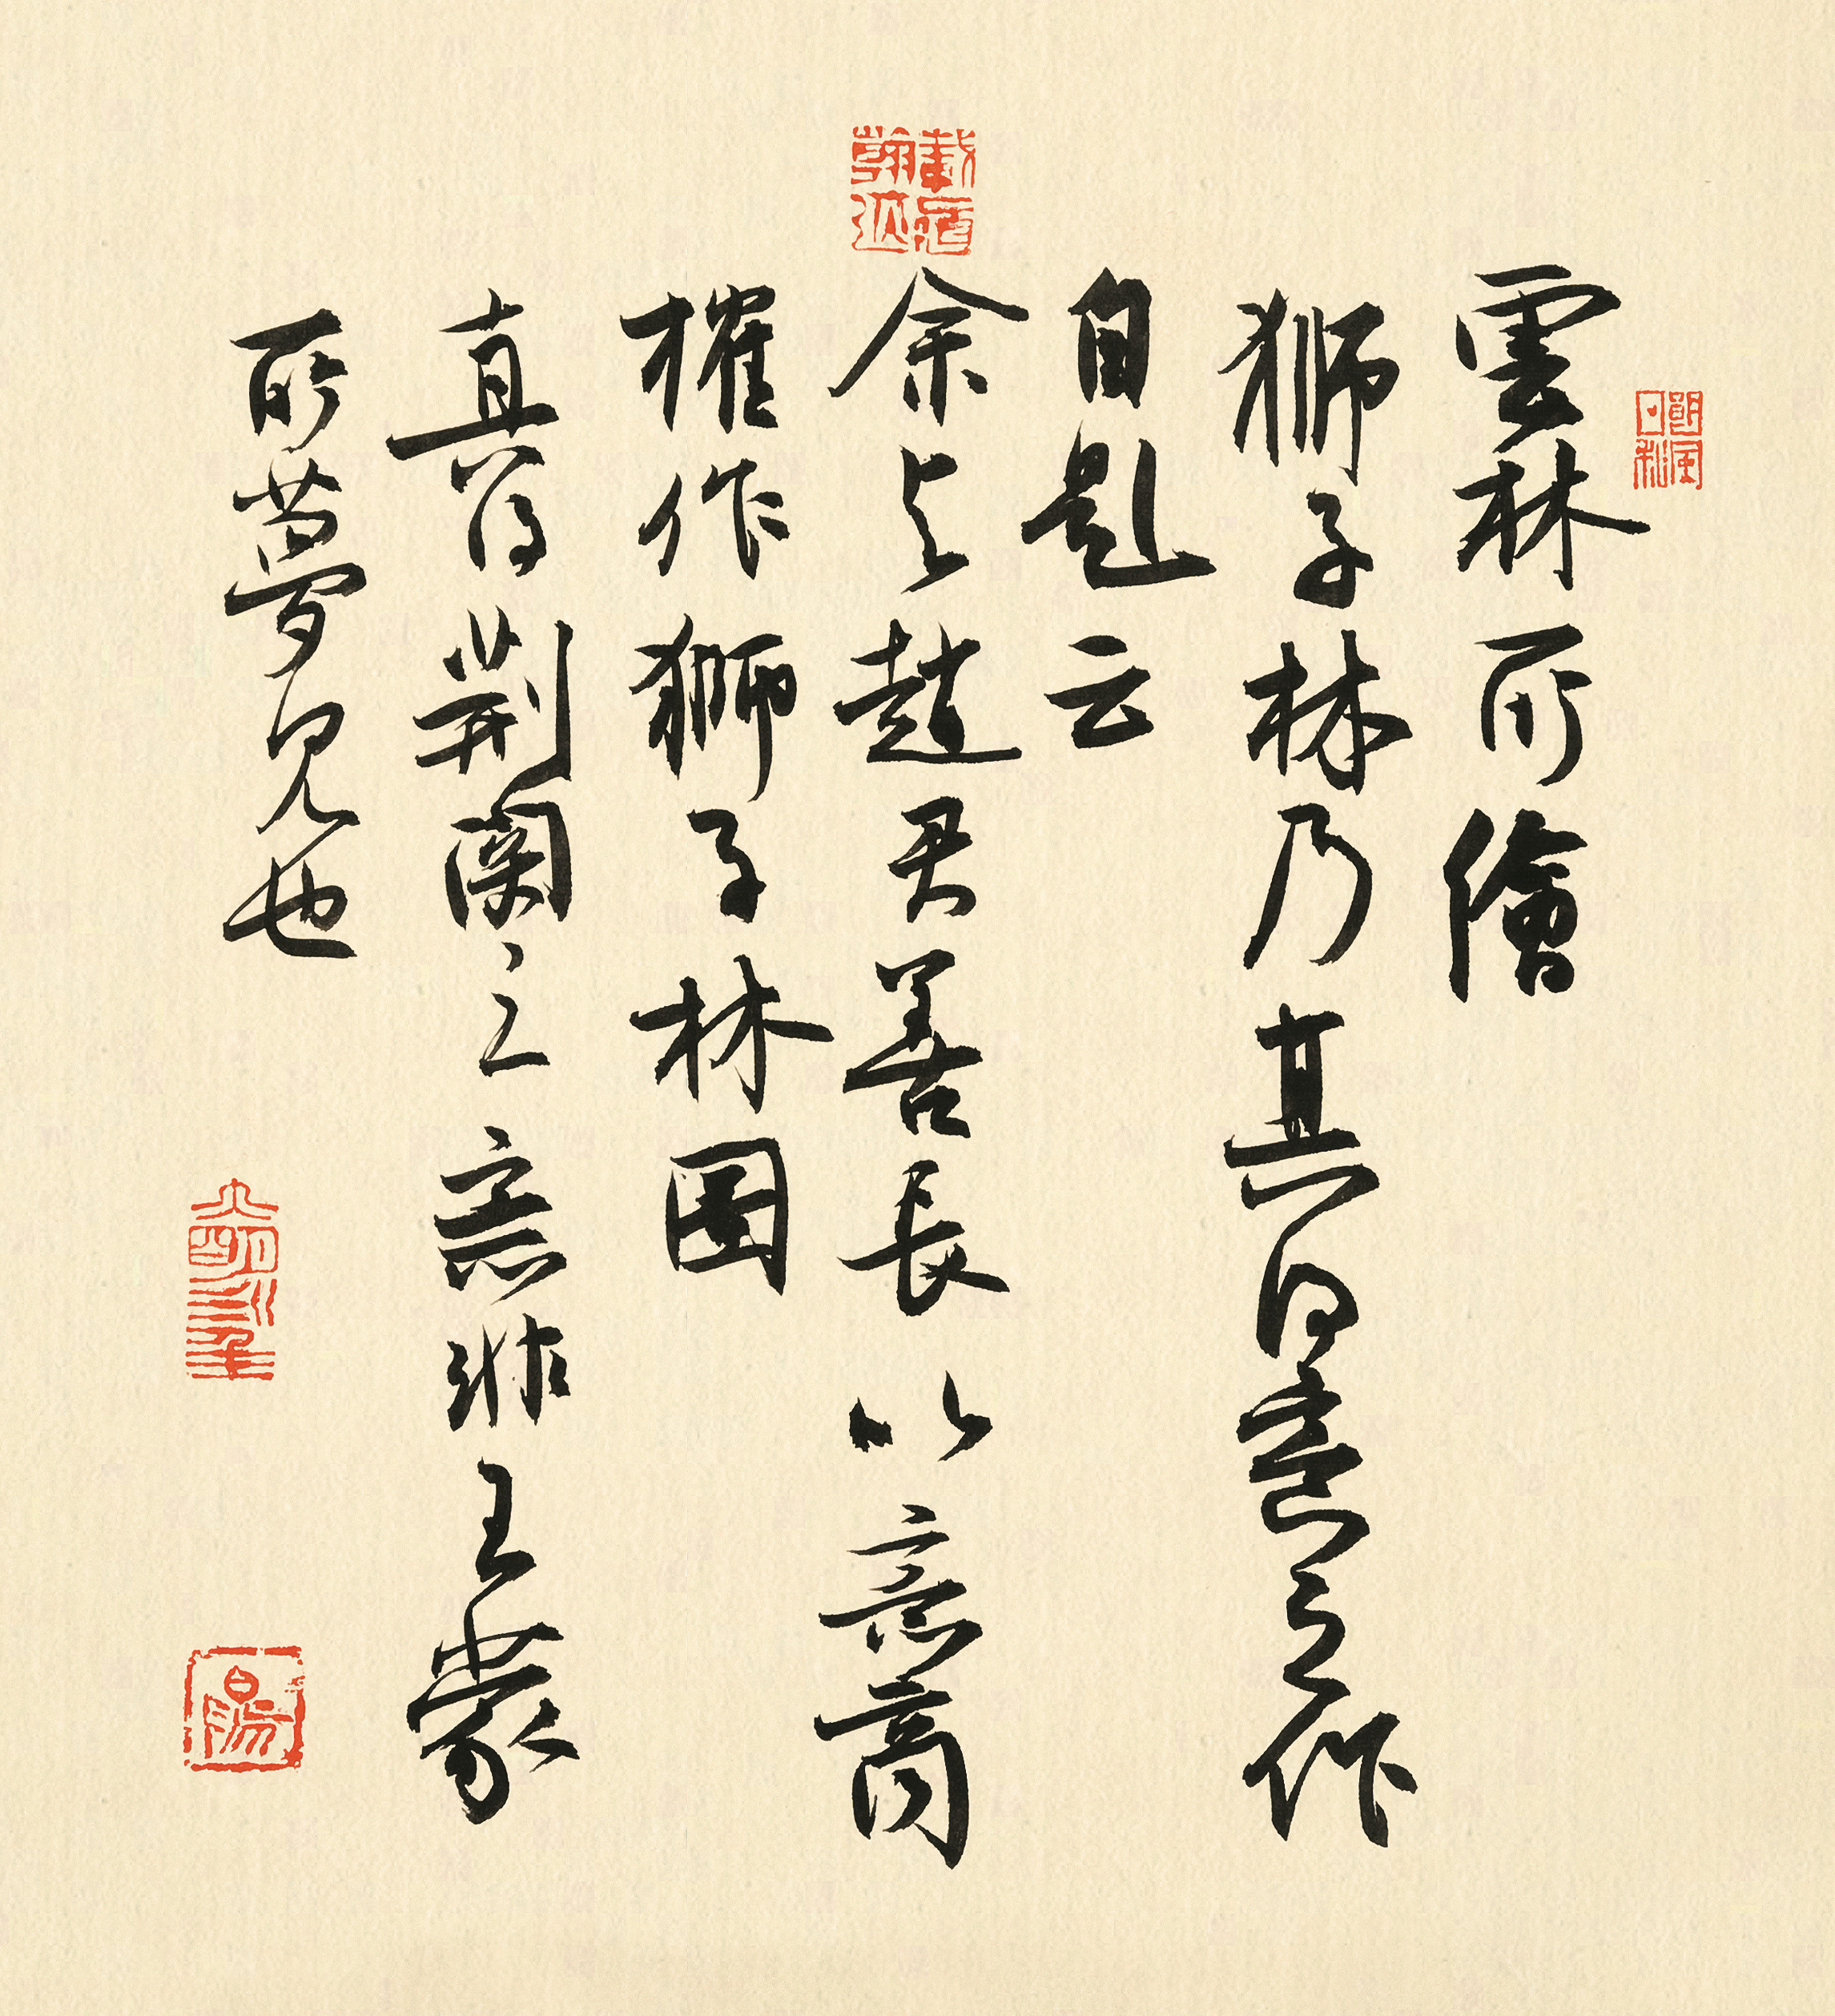 雲林所繪
獅子林乃其得意之作
自題云
余与趙君善長以意商
榷作獅子林图
真得荆関之意非王蒙
所夢見也